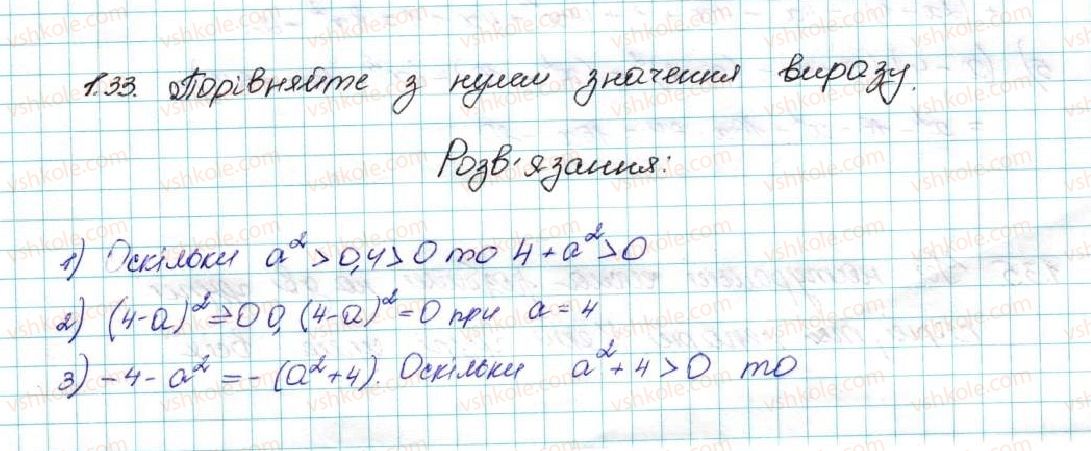 1.33. Порівняйте з нулем значення виразу.
Розв'язання:
1) Оскільки a² > 0, 4 > 0 то 4 + a² > 0
2) (4-a)² ≥ 0 0, (4-a)² = 0 при a = 4
3) -4 - a² = - (a² + 4). Оскільки a² + 4 > 0 то